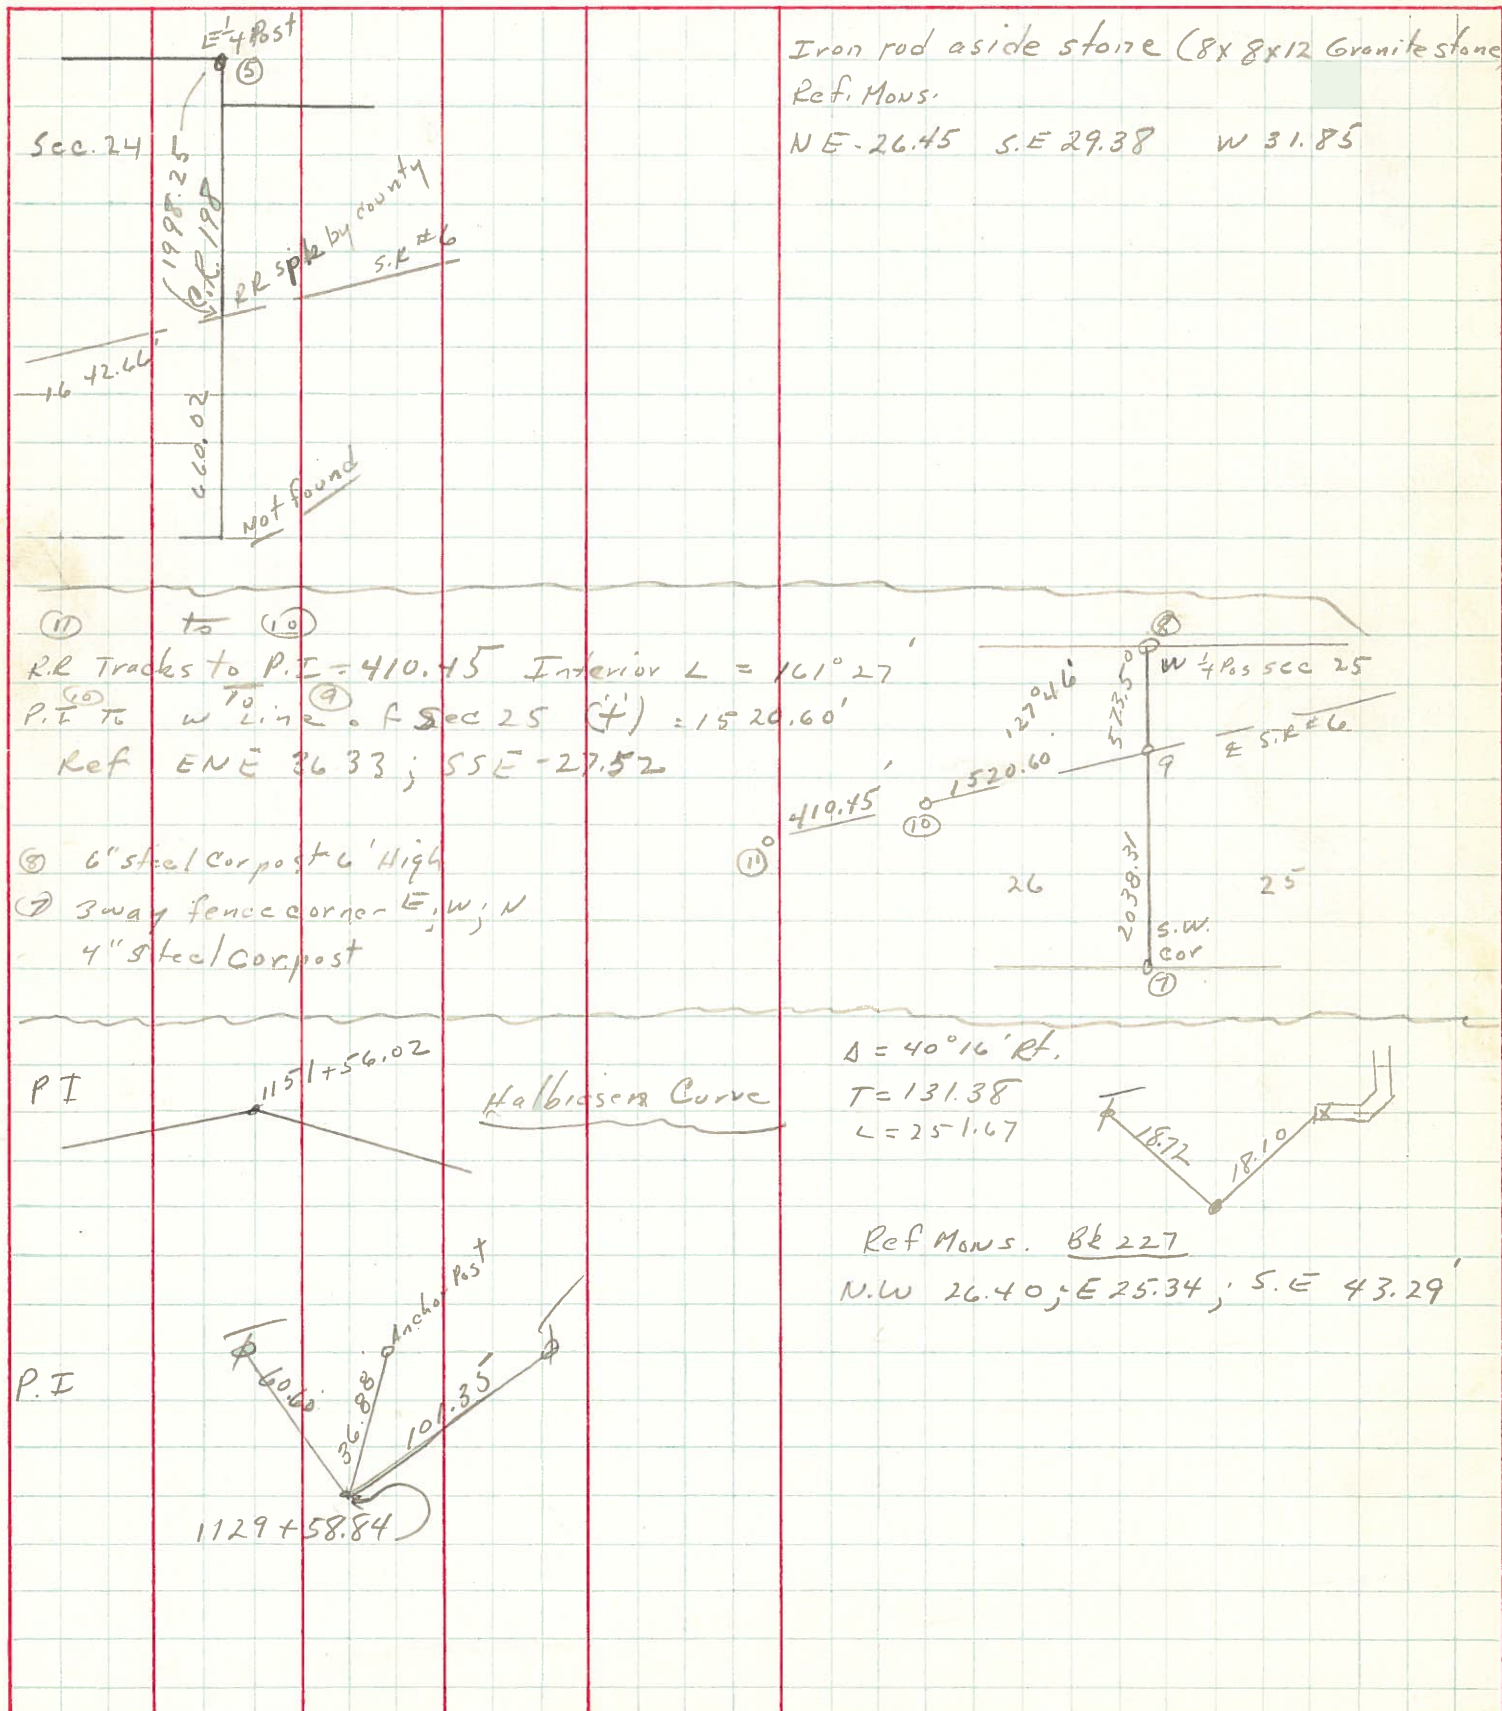 E 1/4 Post
⑤
Sec. 24
1998.25
C.R. 198
RR spk by county
S.R #6
1642.66'
660.02
Not found
Iron rod aside stone (8x8x12 Granite stone
Ref. Mons.
NE-26.45 S.E 29.38 W 31.85
⑪ to ⑩
R.R Tracks to P.I = 410.45' Interior L = 161°27'
⑩ To ⑨
P.I To W Line of Sec 25 (+) = 1520.60'
Ref ENE 36.33; SSE-27.52
⑧ 6" steel Cor post 6' High
⑦ 3way fence corner E; W; N
4" steel Cor. post
⑧
W 1/4 Pos sec 25
573.50
127°46'
℄ S.R #6
9
1520.60
410.45'
⑩
⑪
26
25
2038.31
S.W.
Cor
⑦
PI
1151+56.02
Halbiesen Curve
Δ = 40°16' Rt.
T = 131.38
L = 251.67
18.72
18.10
Ref Mons. Bk 227
N.W 26.40; E 25.34; S.E 43.29'
P.I
60.60
Anchor Post
36.88
101.35'
1129+58.84